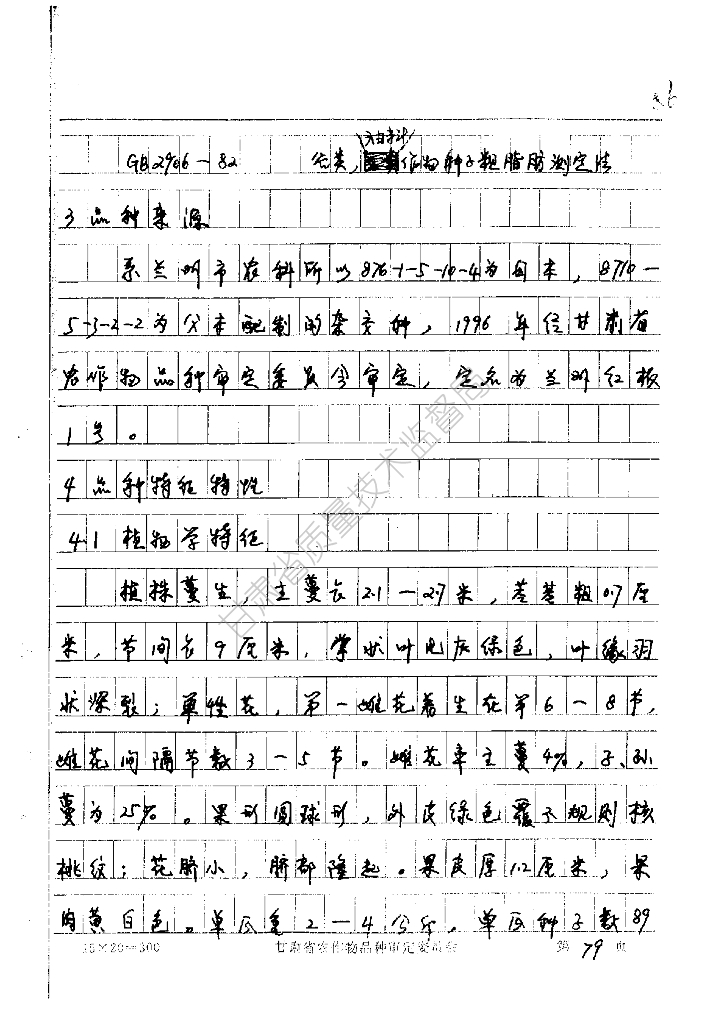 GB2906—82 谷类,油料作物种子粗脂肪测定法
3 品种来源
系兰州市农科所以876-1-5-10-4为母本,8710-
5-3-2-2为父本配制的杂交种,1996年经甘肃省
农作物品种审定委员会审定,定名为兰州红板
1号。
4 品种特征特性
4.1 植物学特征
植株蔓生,主蔓长2.1—2.7米,茎基粗0.7厘
米,节间长9厘米,掌状叶片灰绿色,叶缘羽
状深裂;单性花,第一雌花着生在第6—8节,
雌花间隔节数3—5节。雌花率主蔓4%,子、孙
蔓为25%。果形圆球形,外皮绿色覆不规则核
桃纹;花脐小,脐部隆起。果皮厚1.2厘米,果
肉黄白色。单瓜重2—4公斤,单瓜种子数89
15×20=300 甘肃省农作物品种审定委员会 第79页
甘肃省质量技术监督局